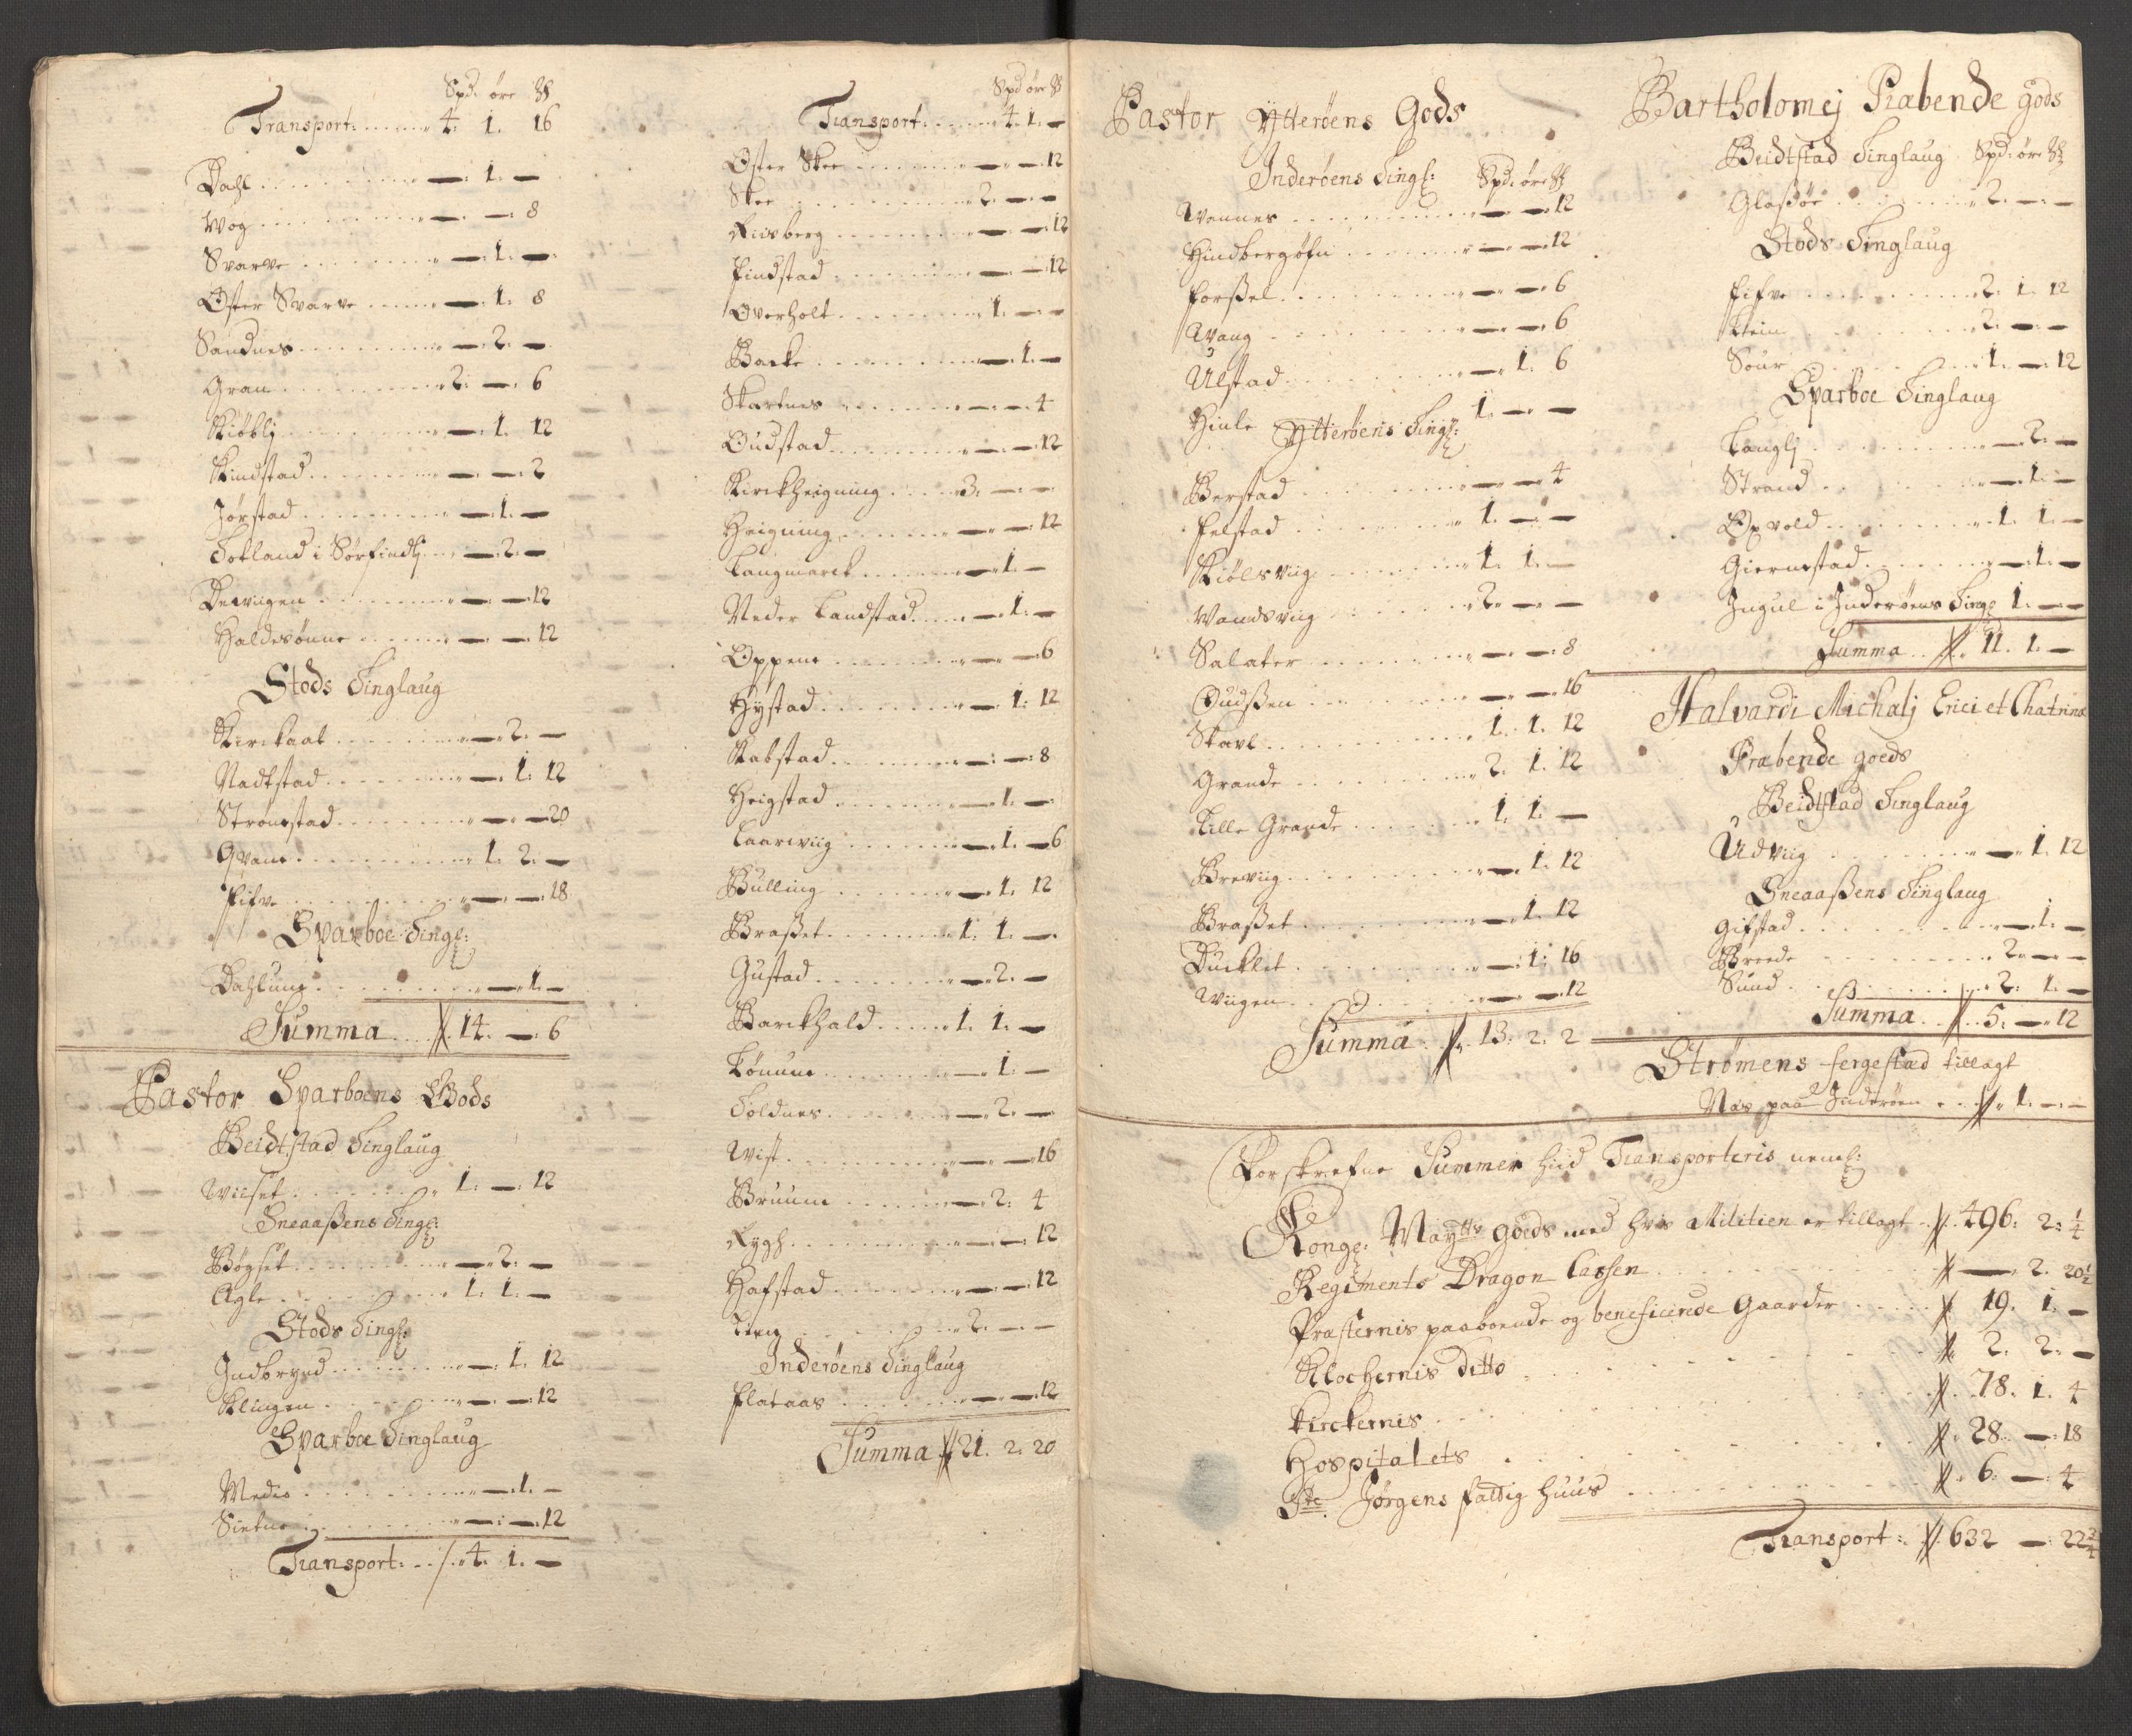 Spd: øre
Transport: 4. 1. 16
Dahl — 1. —
Wog — — 8
Svarve — 1. —
Øster Svarve — 1. 8
Sandnes — 2. —
Gran 2. — 6
Kiøblj — 1. 12
Kindstad — — 2
Jørstad — 1. —
Totland i Sørfindlj — 2. —
Devigen — — 12
Haldesønne — — 12
Stods Tinglaug
Kirckaal — 2. —
Nadtstad — 1. 12
Strømstad — — 20
Qvam 1. 2. —
Fifve — — 18
Sparboe Tingl:
Dahlum — 1. —
Summa 14. — 6
Pastor Sparboens Gods
Beidtstad Tinglaug
Wiiset 1. — 12
Sneaaßens Tingl:
Bøgset — 2. —
Agle 1. 1. —
Stods Tingl:
Indbryed — 1. 12
Klingen — — 12
Sparboe Tinglaug
Medis — 1. —
Sietne — — 12
Transport: 4. 1. —
Spd øre
Transport 4. 1. —
Øster Skee — — 12
Skee 2. — —
Riisberg — — 12
Findstad — — 12
Overholt 1. — —
Backe — 1. —
Skartnes — — 4
Oudstad — — 12
Kirckheigning 3. — —
Heigning — — 12
Langmarck — 1. —
Neder Landstad — 1. —
Oppem — — 6
Hystad — 1. 12
Stabstad — — 8
Heigstad — 1. —
Laarwiig — 1. — 6
Bulling — 1. 12
Braßet 1. 1. —
Gustad — 2. —
Barckhald 1. 1. —
Lønum — 1. —
Toldnes — 2. —
Wist — — 16
Bruum — 2. 4
Rygh — — 12
Hafstad — — 12
Ting 2. — —
Inderøens Tinglaug
Flataas — — 12
Summa 21. 2. 20
Pastor Ytterøens Gods
Inderøens Tingl: Spd: øre
Wannes — — 12
Hindbergøfn — — 12
Forßel — — 6
Wang — — 6
Ulstad — 1. 6
Hiule 1. — —
Ytterøens Tingl:
Berstad — — 4
Felstad 1. — —
Kiølsviig 1. 1. —
Wandsviig 2. — —
Salater — — 8
Oudßen — — 16
Skavl 1. 1. 12
Grande 2. 1. 12
Lille Grande 1. 1. —
Breviig — 1. 12
Braßet — 1. 12
Ducklet — 1. 16
Wiigen — — 12
Summa 13. 2. 2
Bartholomej Præbende gods
Beidtstad Tinglaug Spd: øre
Glaßøe 2. — —
Stods Tinglaug
Fifve 2. 1. 12
Kleim 2. — —
Sour 1. — 12
Sparboe Tinglaug
Langlj — 2. —
Strand — 1. —
Opvold 1. 1. —
Giernestad — 1. —
Ingul i Inderøens Tingl 1. — —
Summa 11. 1. —
Halvardi Michalj Erici et Chatrinæ
Præbende goeds
Beidtstad Tinglaug
Udviig — 1. 12
Sneaaßens Tinglaug
Gifstad — 1. —
Breede 2. — —
Sund 2. 1. —
Summa 5. — 12
Strømens fergestad tillagt
Næs paa Inderøen 1. — —
Forskrefne Summer hiid Transporteris neml:
Kongl: Maytts goeds med hvis Militien er tillagt 496. 2. 1/4
Regiments Dragon Cassen — 2. 20 1/2
Præsternis paaboende og beneficerede Gaarder 19. 1. —
Klochernis ditto 2. 2. —
Kirckernis 78. 1. 4
Hospitalets 28. — 18
Ste Jørgens fattig huus 6. — 4
Transport: 632 — 22 3/4